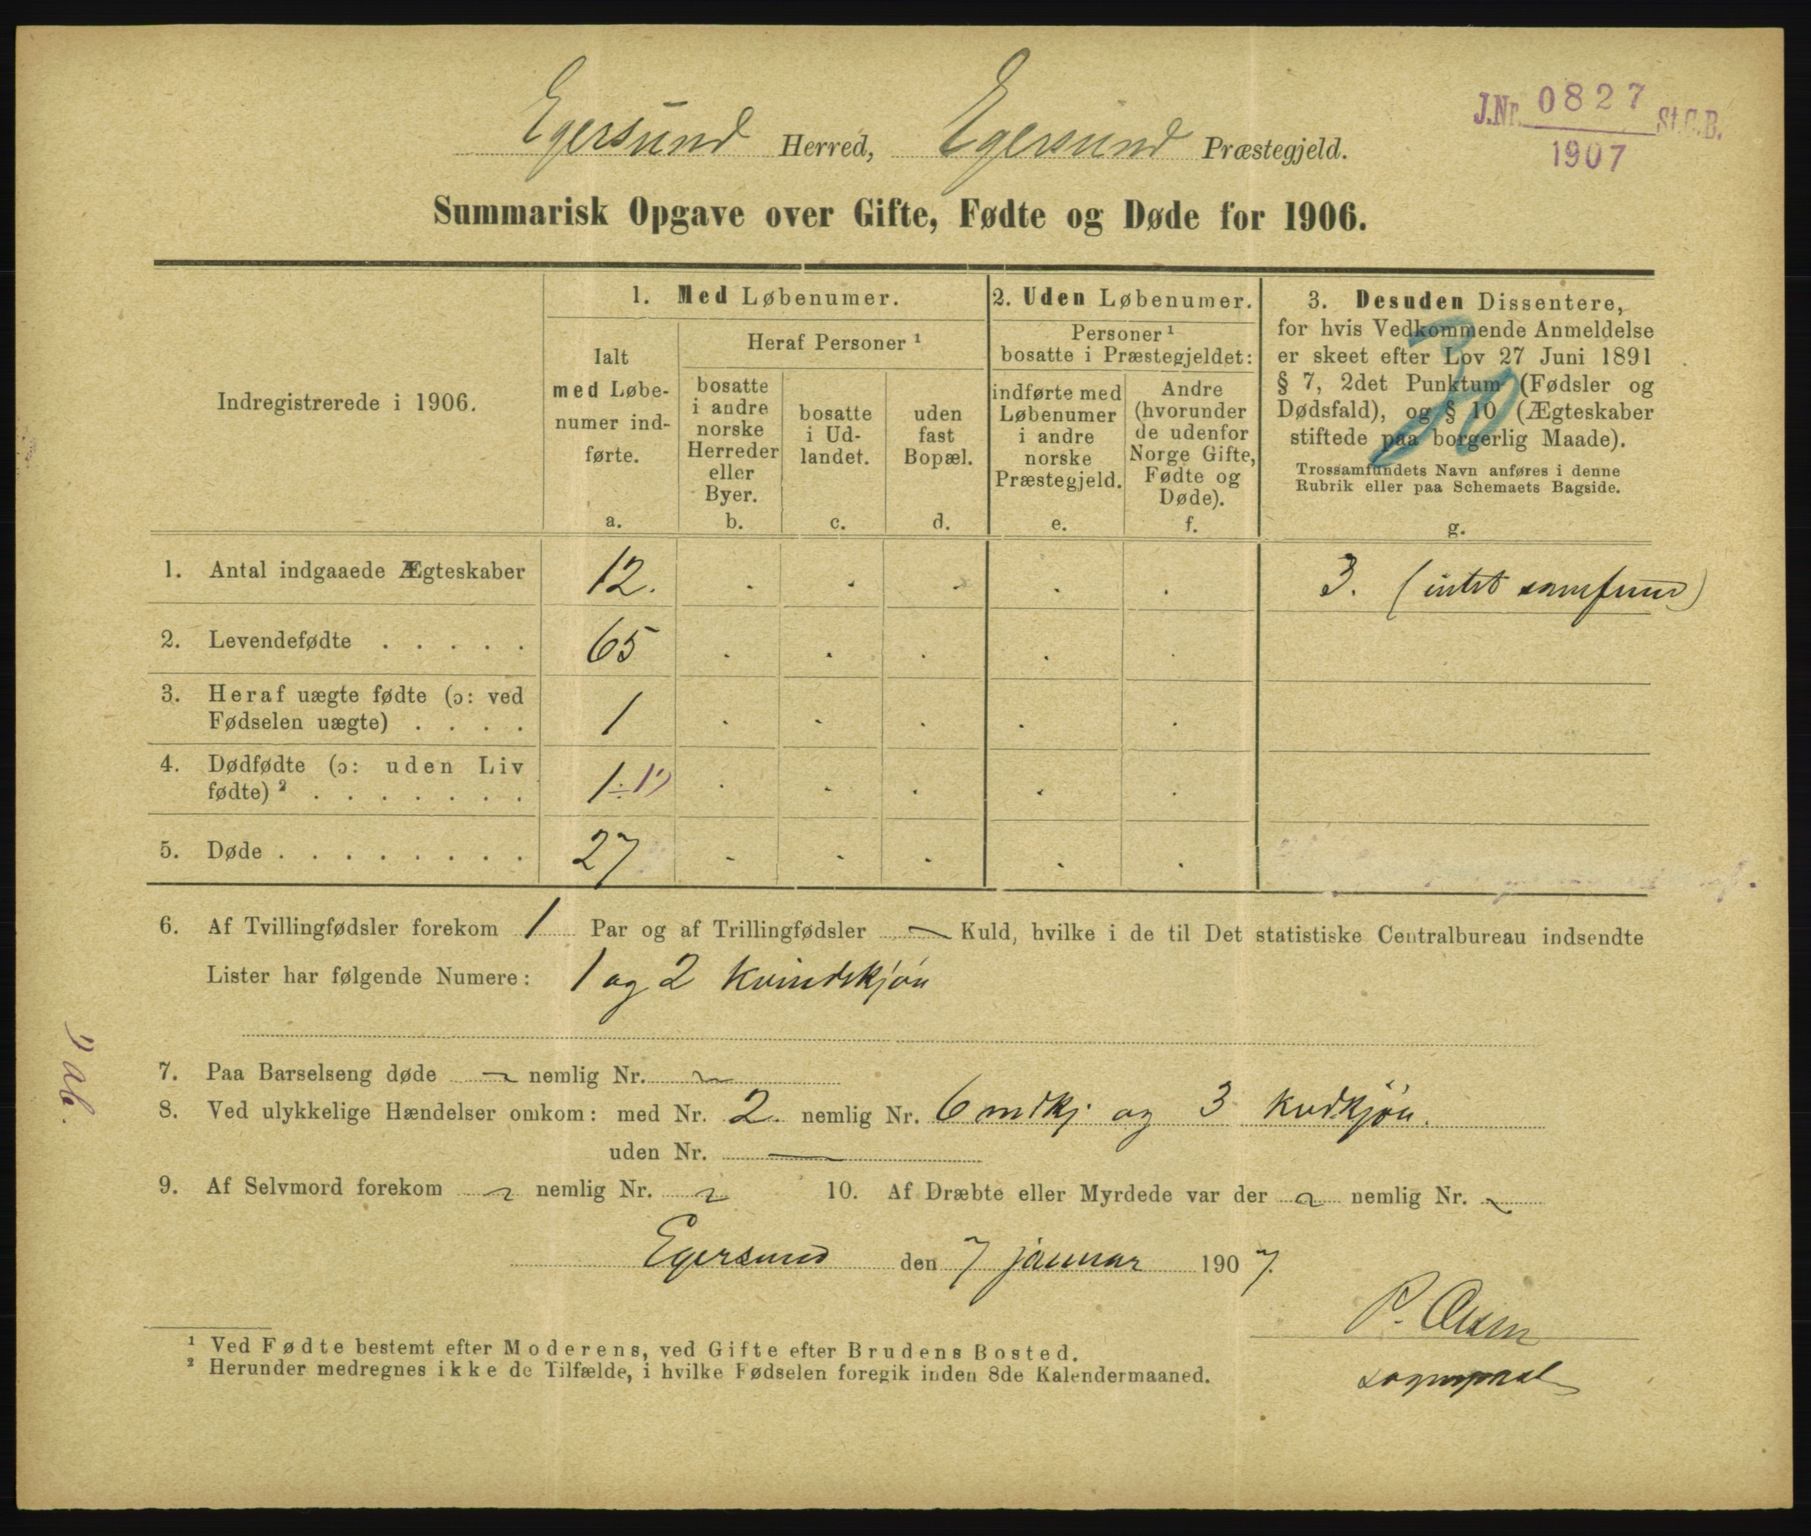 Egersund Herred, Egersund Præstegjeld.
J.Nr. 0827 St.C.B.
1907
Summarisk Opgave over Gifte, Fødte og Døde for 1906.
Indregistrerede i 1906.
1. Med Løbenumer.
Ialt
med Løbe-
numer ind-
førte.
a.
Heraf Personer ¹
bosatte
i andre
norske
Herreder
eller
Byer.
b.
bosatte
i Ud-
landet.
c.
uden
fast
Bopæl.
d.
2. Uden Løbenumer.
Personer ¹
bosatte i Præstegjeldet:
indførte med
Løbenumer
i andre
norske
Præstegjeld.
e.
Andre
(hvorunder
de udenfor
Norge Gifte,
Fødte og
Døde).
f.
3. Desuden Dissentere,
for hvis Vedkommende Anmeldelse
er skeet efter Lov 27 Juni 1891
§ 7, 2det Punktum (Fødsler og
Dødsfald), og § 10 (Ægteskaber
stiftede paa borgerlig Maade).
Trossamfundets Navn anføres i denne
Rubrik eller paa Schemaets Bagside.
g.
1. Antal indgaaede Ægteskaber 12. . . . . . 3. (intet samfund)
2. Levendefødte . . . . . 65 . . . . .
3. Heraf uægte fødte (ɔ: ved
Fødselen uægte) . . . . 1 . . . . .
4. Dødfødte (ɔ: uden Liv
fødte) ² . . . . . . . 1 ÷ 1) . . . . .
5. Døde . . . . . . . . 27 . . . . .
6. Af Tvillingfødsler forekom 1 Par og af Trillingfødsler — Kuld, hvilke i de til Det statistiske Centralbureau indsendte
Lister har følgende Numere: 1 og 2 kvindekjøn
7. Paa Barselseng døde — nemlig Nr. —
8. Ved ulykkelige Hændelser omkom: med Nr. 2. nemlig Nr. 6 mdkj. og 3 kvdkjøn.
uden Nr. —
9. Af Selvmord forekom — nemlig Nr. — 10. Af Dræbte eller Myrdede var der — nemlig Nr. —
Egersund den 7 januar 1907.
¹ Ved Fødte bestemt efter Moderens, ved Gifte efter Brudens Bosted.
² Herunder medregnes ikke de Tilfælde, i hvilke Fødselen foregik inden 8de Kalendermaaned.